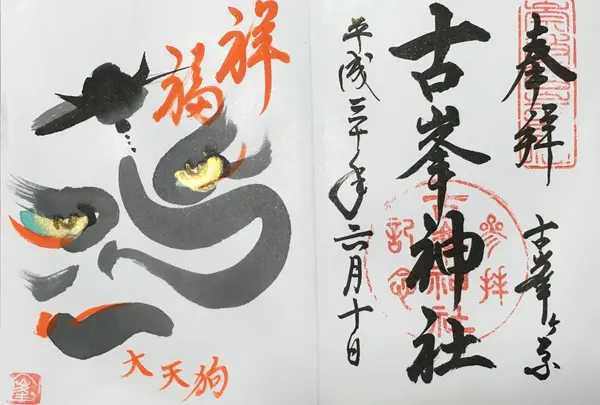 奉拝
古峯ヶ原
古峯神社
參拝
記念
平成三十年六月十日
祥福
大天狗